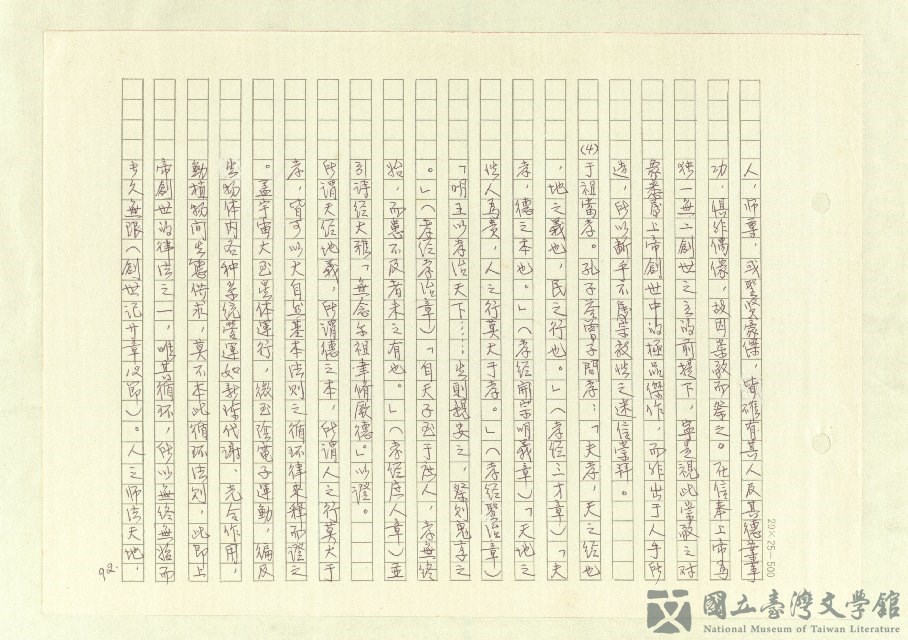 人，師尊，或聖賢豪傑，皆確有其人及其德業事
功，俱非偶像，故因崇敬而祭之。在信奉上帝為
獨一無二創世之主的前提下，寧是視此崇敬之對
象悉為上帝創世中的極品傑作，而非出于人手所
造，所以斷乎不是崇敬性之迷信崇拜。
(4)于祖當孝。孔子答曾子問孝：「夫孝，天之經也
，地之義也，民之行也。」（孝經三才章）「夫
孝，德之本也。」（孝經開宗明義章）「天地之
性人為貴，人之行莫大于孝。」（孝經聖治章）
「明王以孝治天下……生則親安之，祭則鬼享之
。」（孝經孝治章）「自天子至于庶人，孝無終
始，而患不及者未之有也。」（孝經庶人章）並
引詩經大雅「無念尔祖聿脩厥德。」以證。
所謂天經地義，所謂德之本，所謂人之行莫大于
孝，皆可以大自然基本法則之循環律來釋而證之
。蓋宇宙大至星体運行，微至陰電子運動，徧及
生物体內各种系統營運如新陳代謝、光合作用，
動植物間生態供求，莫不本此循環法則，此即上
帝創世的律法之一，唯其循環，所以無終無始而
長久無限（創世記廿章 節）。人之師法天地，
92.
20×25=500
國立臺灣文學館
National Museum of Taiwan Literature